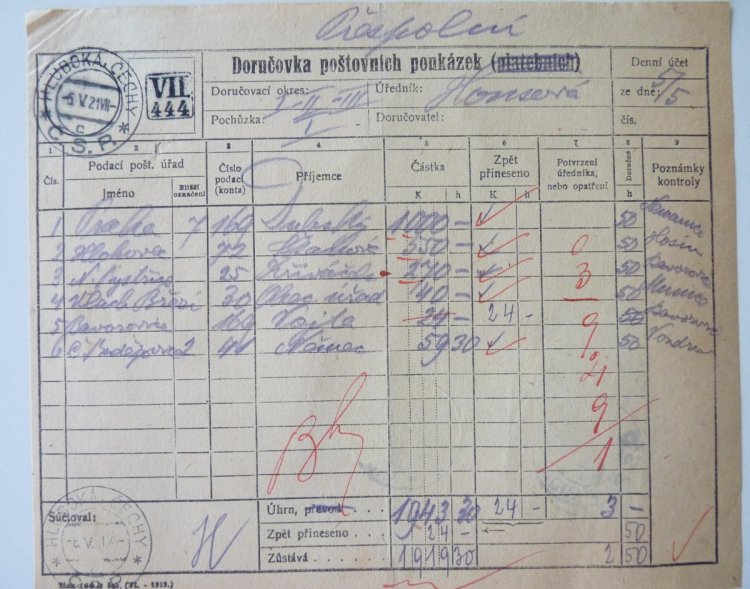 HLUBOKÁ, ČECHY
-5.V.21 VII-
c
* Č.S.P. *
VII.
444
Doručovka poštovních poukázek (platebních)
Doručovací okres: I-II-III
Úředník: Honsová
Denní účet
ze dne: 5/5
Pochůzka: I
Doručovatel:
čís.
1 2 3 4 5 6 7 8 9
Čís.
Podací pošt. úřad
Jméno
Bližší označení
Číslo podací (konta)
Příjemce
Částka
K h
Zpět přineseno
K h
Potvrzení úředníka, nebo opatření
Doručné
h
Poznámky kontroly
1 Praha 7 169 Dubský 1500 - 50
2 72 550 - 50 Hosín
3 N. Bystřice 25 270 - 50
4 Vlach. Březí 30 Obec. úřad 140 - 50
5 Bavorovice 169 Vojta 24 - 24 - 50
6 Č. Budějovice 2 Němec 59 30 50
0
3
9
2
9
1
Úhrn, převod . . . 1943 30 24 - 3 -
Súčtoval:
Zpět přineseno . . . 24 - 50
Zůstává . . . 1919 30 2 50
HLUBOKÁ, ČECHY
(VI. - 1919.)